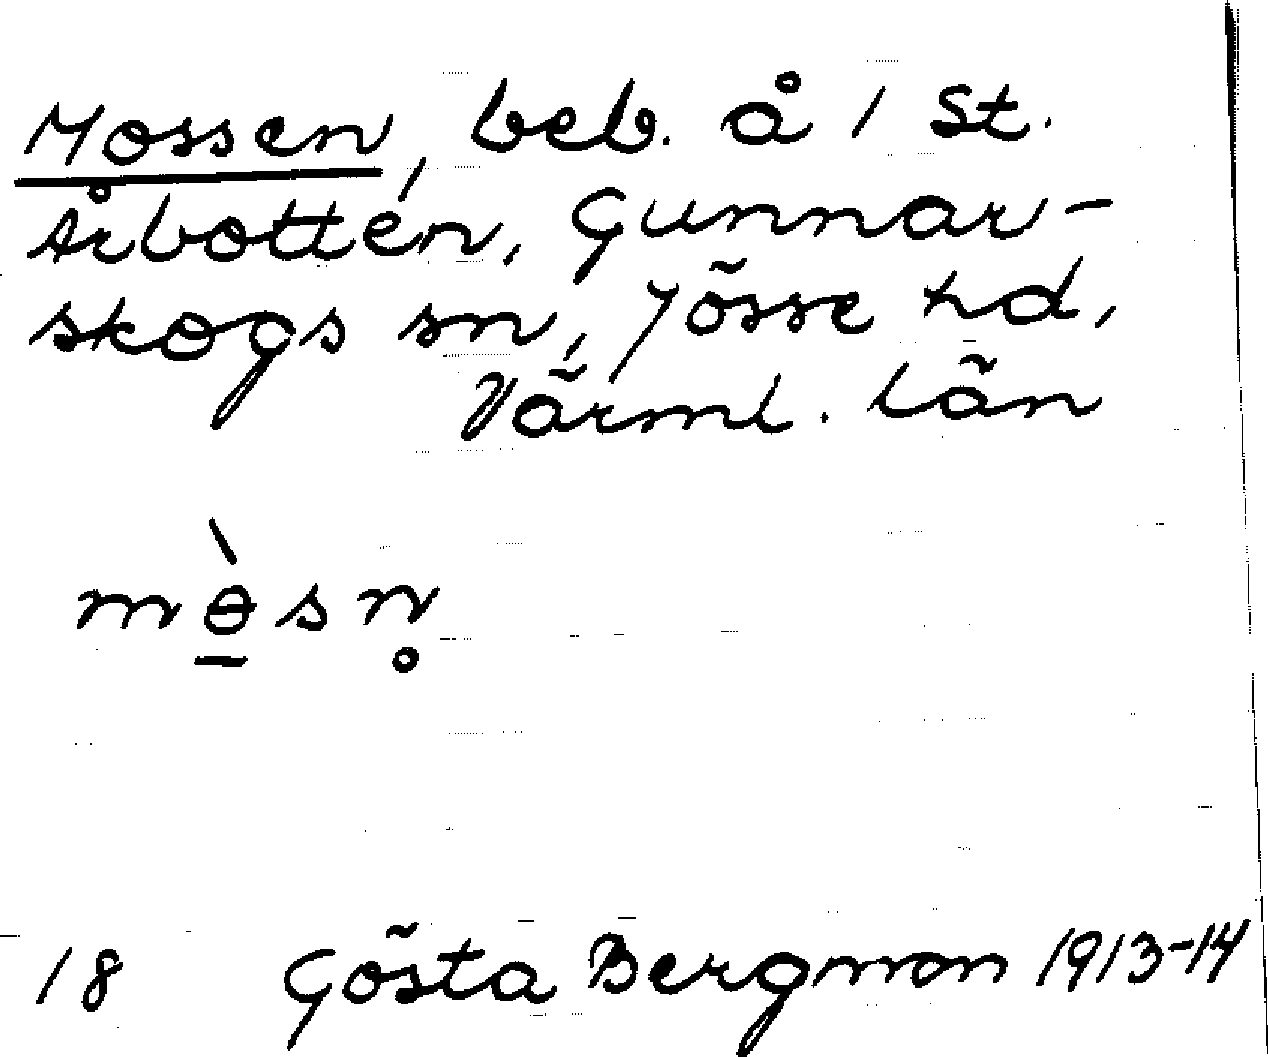 Mossen, beb. å 1 St.
Årbotten, Gunnar-
skogs sn, Jösse hd,
Värml. län
mɵ̠̀sn̥
18 Gösta Bergman 1913-14